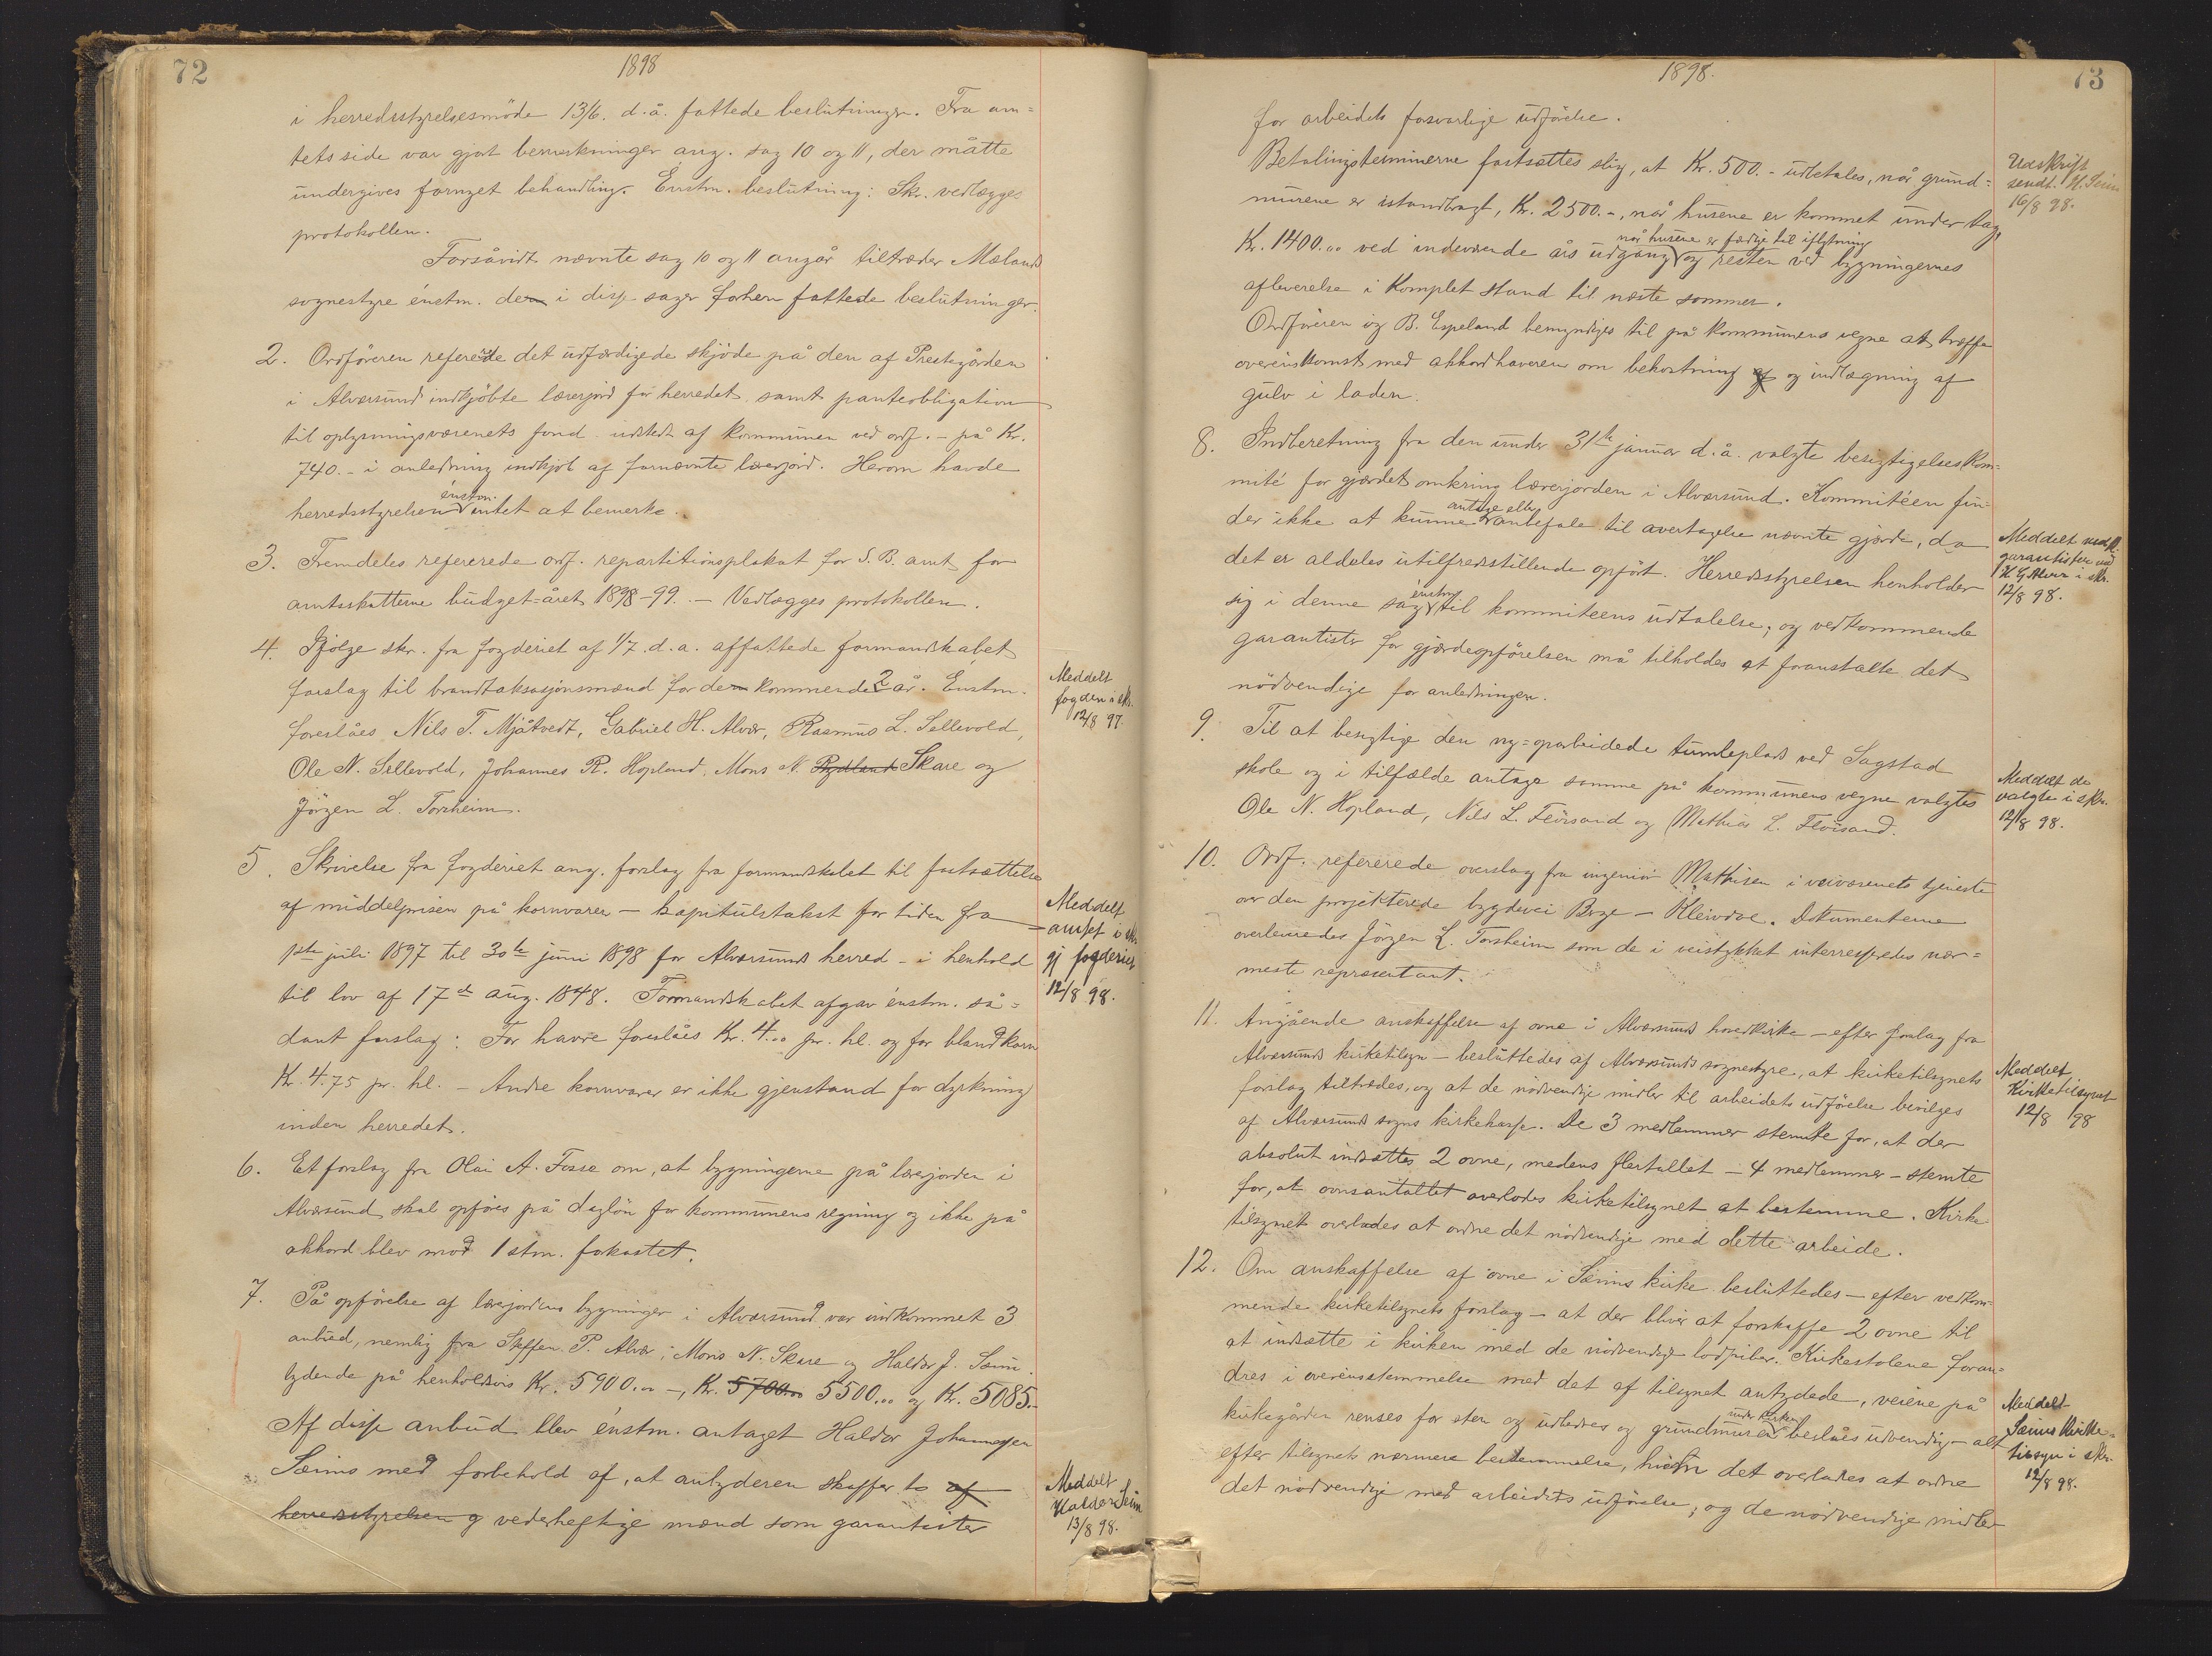 72
1898
i herredsstyrelsesmöde 13/6. d. å. fattede beslutninger. Fra am=
tets side var gjort bemerkninger ang. sag 10 og 11, der måtte
undergives fornyet behandling. Enstm. beslutning: Skr. vedlægges
protokollen.
Forsåvidt nævnte sag 10 og 11 angår tiltræder Mælands
sognestyre énstm. de i disse sager forhen fattede beslutninger.
2. Ordföreren refererede det udfærdigede skjöde på den af Prestegården
i Alversund indkjöbte lærerjord for herredet samt panteobligation
til oplysningsvæsenets fond udstedt af kommunen ved ordf. – på Kr.
740.- i anledning indkjöb af fornævnte lærerjord. Herom havde
herredsstyrelsen énstm. intet at bemerke.
3. Fremdeles refererede ordf. repartitionsplakat for S. B. amt for
amtsskatterne budget=året 1898-99. – Vedlægges protokollen.
4. Ifölge skr. fra fogderiet af 1/7. d. a. affattede formandskabet
forslag til brandtaksasjonsmænd for de kommende 2 år. Enstm.
foreslåes Nils T. Mjåtvedt, Gabriel H. Alver, Rasmus L. Sellevold,
Ole N. Sellevold, Johannes R. Hopland, Mons N. Rydland Skare og
Jörgen L. Torsheim.
Meddelt
fogden i skr.
12/8 97.
5. Skrivelse fra fogderiet ang. forslag fra formandskabet til fastsættelse
af middelprisen på kornvarer – kapitulstakst for tiden fra
1ste juli 1897 til 30te juni 1898 for Alversunds herred – i henhold
til lov af 17de aug. 1848. Formandskabet afgav énstm. så=
dant forslag: For havre foreslåes Kr. 4.00 pr. hl. og for blandkorn
Kr. 4.75 pr. hl. – Andre kornvarer er ikke gjenstand for dyrkning
inden herredet.
Meddelt
amtet i skr
gj fogderiet
12/8 98.
6. Et forslag fra Olai A. Fosse om, at bygningerne på lærerjorden i
Alversund skal opföres på daglön for kommunens regning og ikke på
akkord blev mod 1 stm. forkastet.
7. På opförelse af lærerjordens bygninger i Alversund var indkommet 3
anbud, nemlig fra Steffen P. Alver, Mons N. Skare og Haldor J. Sæim
lydende på henholdsvis Kr. 5900.00 –, Kr. 5700.00 5500.00 og Kr. 5085.–
Af disse anbud blev énstm. antaget Haldor Johannessen
Sæims med forbehold af, at anbyderen skaffer to af
herredsstyrelsen g vederheftige mænd som garantister
Meddelt
Haldor Seim
13/8 98.
73
1898.
for arbeidets forsvarlige udförelse.
Betalingsterminerne fastsættes slig, at Kr. 500.- udbetales, når grund=
murene er istandbragt, Kr. 2500.-, når husene er kommet under tag,
Kr. 1400.00 ved indeværende års udgang når husene er færdige til iflytning og resten ved bygningernes
afleverelse i komplet stand til næste sommer.
Ordföreren og B. Espeland bemyndiges til på kommunens vegne at træffe
overenskomst med akkordhaveren om bekostning af og indlægning af
gulv i laden.
Udskrift
sendt H. Seim
16/8 98.
8. Indberetning fra den under 31te januar d. å. valgte besigtigelseskom=
mité for gjærdet omkring lærerjorden i Alversund. Kommitéen fin=
der ikke at kunne antage eller anbefale til overtagelse nævnte gjærde, da
det er aldeles utilfredsstillende opfört. Herredsstyrelsen henholder
sig i denne sag énstm. til kommiteens udtalelse, og vedkommende
garantister for gjærdeopförelsen må tilholdes at foranstalte det
nödvendige for anledningen.
Meddelt vedk.
garantister ved
H G Alver i skr.
12/8 98.
9. Til at besigtige den ny=oparbeidede tumleplads ved Sagstad
skole og i tilfælde antage samme på kommunens vegne valgtes
Ole N. Hopland, Nils L. Flörsand og Mathias L. Flörsand.
Meddelt de
valgte i skr.
12/8 98.
10. Ordf. refererede overslag fra ingeniör Mathisen i veivæsenets tjeneste
over den projekterede bygdevei Boge – Kleivdal. Dokumenterne
overleveredes Jörgen L. Torsheim som de i veistykket interresseredes nær=
meste representant.
11. Angående anskaffelse af ovne i Alversunds hovedkirke – efter forslag fra
Alversunds kirketilsyn – besluttedes af Alversunds sognestyre, at kirketilsynets
forslag tiltrædes, og at de nödvendige midler til arbeidets udförelse bevilges
af Alversunds sogns kirkekasse. De 3 medlemmer stemte for, at der
absolut indsættes 2 ovne, medens flertallet – 4 medlemmer – stemte
for, at ovnsantallet overlades kirketilsynet at bestemme. Kirke
tilsynet overlades at ordne det nödvendige med dette arbeide.
Meddelt
Kirketilsynet
12/8 98
12. Om anskaffelse af ovne i Sæims kirke besluttedes – efter vedkom=
mende kirketilsynets forslag – at der bliver at forskaffe 2 ovne til
at indsætte i kirken med de nödvendige lodpiber. Kirkestolene foran=
dres i overensstemmelse med det af tilsynet antydede, veiene på
kirkegården renses for sten og udbedres og grundmuren under kirken beslåes udvendig – alt
efter tilsynets nærmere bestemmelse, hvem det overlades at ordne
det nödvendige med arbeidets udförelse; og de nödvendige midler
Meddelt
Sæims Kirke=
tilsyn i skr.
12/8 98.